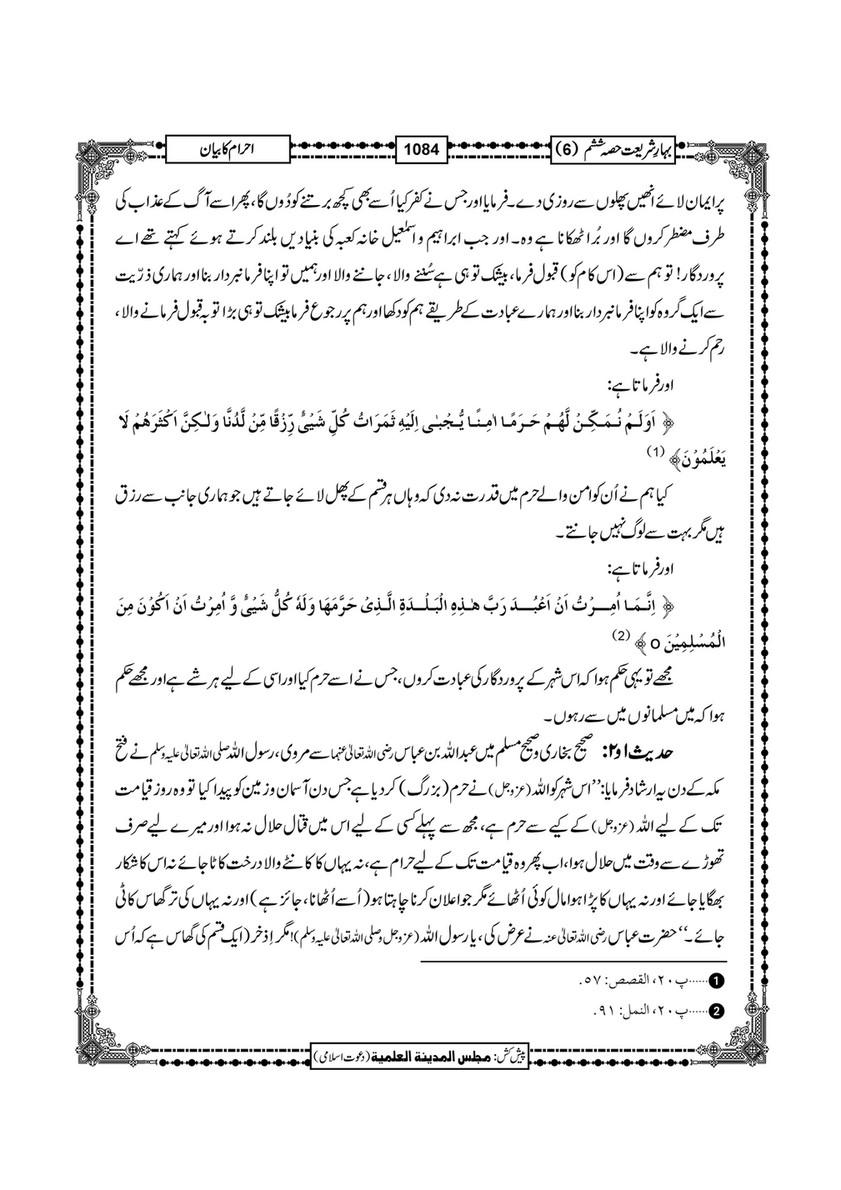 بہارِشریعت حصہ ششم (6)
1084
احرام کا بیان
پر ایمان لائے انھیں پھلوں سے روزی دے۔ فرمایا اور جس نے کفر کیا اُسے بھی کچھ برتنے کو دُوں گا، پھر اسے آگ کے عذاب کی
طرف مضطر کروں گا اور بُرا ٹھکانا ہے وہ۔ اور جب ابراہیم و اسمٰعیل خانہ کعبہ کی بنیادیں بلند کرتے ہوئے کہتے تھے اے
پروردگار! تو ہم سے (اس کام کو) قبول فرما، بیشک تو ہی ہے سُننے والا، جاننے والا اور ہمیں تو اپنا فرمانبردار بنا اور ہماری ذرّیت
سے ایک گروہ کو اپنا فرمانبردار بنا اور ہمارے عبادت کے طریقے ہم کو دکھا اور ہم پر رجوع فرما بیشک تو ہی بڑا توبہ قبول فرمانے والا،
رحم کرنے والا ہے۔
اور فرماتا ہے:
﴿ اَوَلَمْ نُمَكِّنْ لَّهُمْ حَرَمًا اٰمِنًا يُّجْبٰى اِلَيْهِ ثَمَرَاتُ كُلِّ شَيْءٍ رِّزْقًا مِّنْ لَّدُنَّا وَلٰكِنَّ اَكْثَرَهُمْ لَا
يَعْلَمُوْنَ﴾ (1)
کیا ہم نے اُن کو امن والے حرم میں قدرت نہ دی کہ وہاں ہر قسم کے پھل لائے جاتے ہیں جو ہماری جانب سے رزق
ہیں مگر بہت سے لوگ نہیں جانتے۔
اور فرماتا ہے:
﴿ اِنَّمَا اُمِرْتُ اَنْ اَعْبُدَ رَبَّ هٰذِهِ الْبَلْدَةِ الَّذِيْ حَرَّمَهَا وَلَهٗ كُلُّ شَيْءٍ وَّ اُمِرْتُ اَنْ اَكُوْنَ مِنَ
الْمُسْلِمِيْنَ o ﴾ (2)
مجھے تو یہی حکم ہوا کہ اس شہر کے پروردگار کی عبادت کروں، جس نے اسے حرم کیا اور اسی کے لیے ہر شے ہے اور مجھے حکم
ہوا کہ میں مسلمانوں میں سے رہوں۔
حدیث ۱ و ۲: صحیح بخاری و صحیح مسلم میں عبداللہ بن عباس رضی اللہ تعالیٰ عنہما سے مروی، رسول اللہ صلی اللہ تعالیٰ علیہ وسلم نے فتح
مکہ کے دن یہ ارشاد فرمایا: ’’اس شہر کو اللہ (عزوجل) نے حرم (بزرگ) کر دیا ہے جس دن آسمان و زمین کو پیدا کیا تو وہ روز قیامت
تک کے لیے اللہ (عزوجل) کے کیے سے حرم ہے، مجھ سے پہلے کسی کے لیے اس میں قتال حلال نہ ہوا اور میرے لیے صرف
تھوڑے سے وقت میں حلال ہوا، اب پھر وہ قیامت تک کے لیے حرام ہے، نہ یہاں کا کانٹے والا درخت کاٹا جائے نہ اس کا شکار
بھگایا جائے اور نہ یہاں کا پڑا ہوا مال کوئی اُٹھائے مگر جو اعلان کرنا چاہتا ہو (اُسے اُٹھانا، جائز ہے) اور نہ یہاں کی تر گھاس کاٹی
جائے۔‘‘ حضرت عباس رضی اللہ تعالیٰ عنہ نے عرض کی، یا رسول اللہ (عزوجل و صلی اللہ تعالیٰ علیہ وسلم)! مگر اِذخر (ایک قسم کی گھاس ہے کہ اُس
1 ……پ ۲۰، القصص: ۵۷.
2 ……پ ۲۰، النمل: ۹۱.
پیش کش: مجلس المدينة العلمية (دعوت اسلامی)